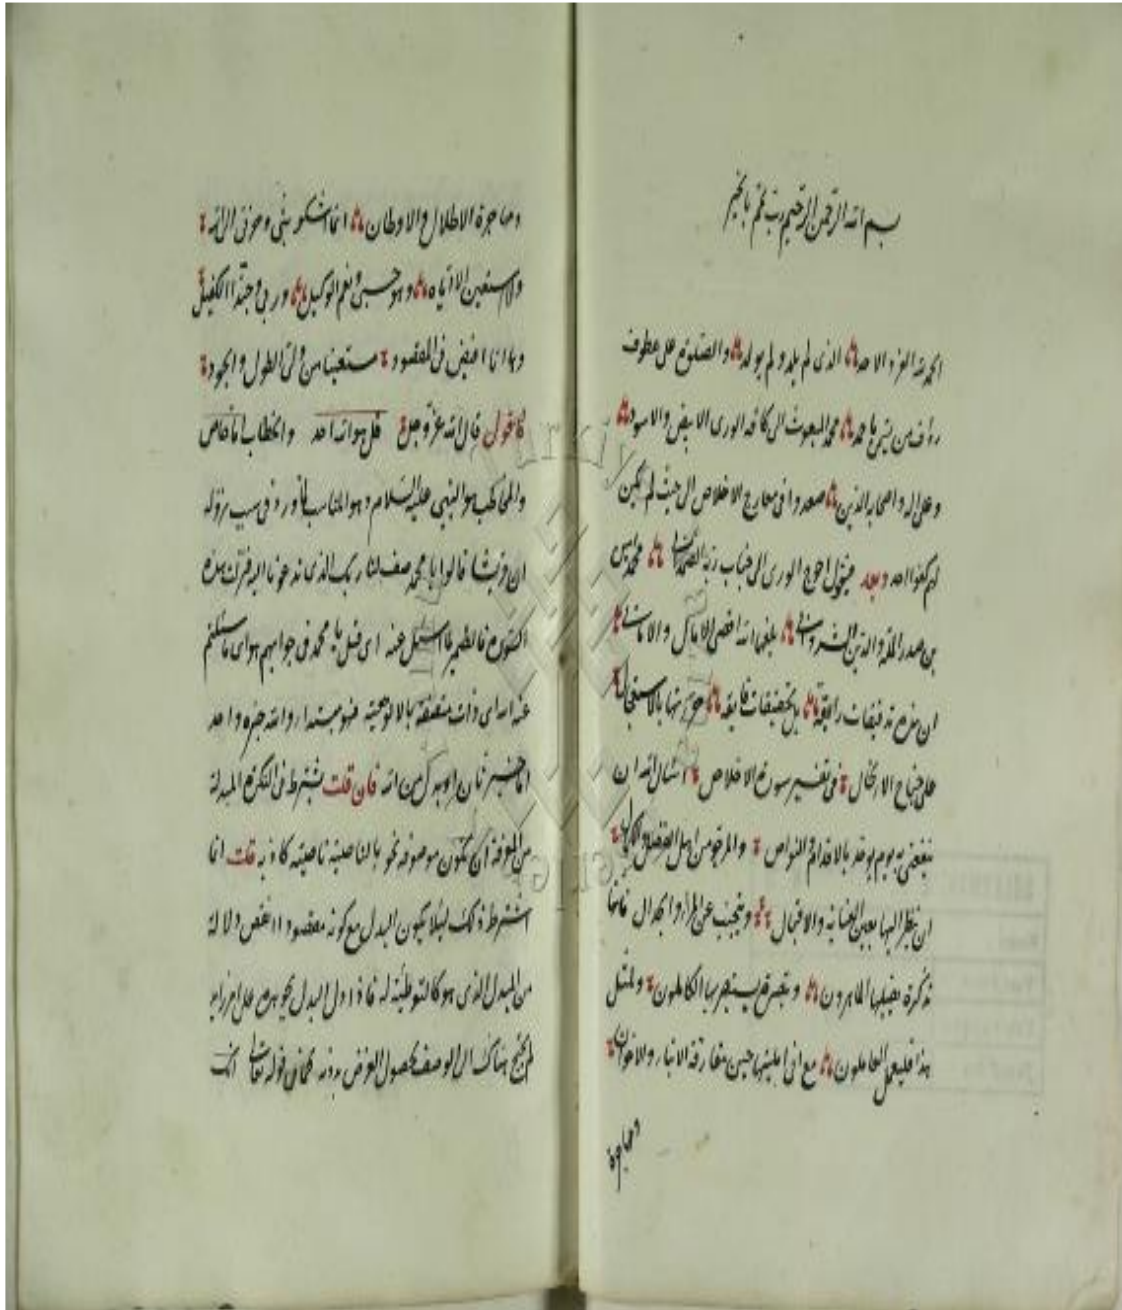 بسم الله الرحمن الرحيم رب تمم بالخير
الحمد لله الفرد الاحد الذى لم يلد ولم يولد والصلوة على عطوف
رؤف من تسمى باحمد محمد المبعوث الى كافة الورى الابيض والاسود
وعلى اله واصحابه الذين صعدوا فى معارج الاخلاص الى حيث لم يكن
لهم كفوا احد وبعد فيقول احوج الورى الى جناب ربه الصمدانى محمد امين
بن صدر الملة والدين الشروانى بلغهما الله اقصى الامال والامانى
ان هذه تدقيقات رايقة بل تحقيقات فايقة حررتها بالاستعجال
على جناح الارتحال فى تفسير سورة الاخلاص اسئال الله ان
ينفعنى به يوم يوخذ بالاقدام والنواص والمرجو من اهل الفضل والكمال
ان ينظر اليها بعين العناية والاقبال ويتجنب عن المراء والجدال فانها
تذكرة يقبلها الماهرون وتبصرة يستبصر بها الكاملون ولمثل
هذا فليعمل العاملون مع انى امليتها حين مفارقة الاخوان
ومهاجرة
ومهاجرة الاطلال والاوطان انما اشكو بثى وحزنى الى الله
ولا استعين الا اياه وهو حسبى ونعم الوكيل وربى وحبذا الكفيل
وها انا افيض فى المقصود مستعينا من ولى الطول والجود
فاقول قال الله عز وجل قل هو الله احد والخطاب اما خاص
والمخاطب هو النبى عليه السلام وهو المناسب لما ورد فى سبب نزوله
ان قريشا قالوا يا محمد صف لنا ربك الذى تدعونا اليه فنزلت هذه
السورة فالضمير لما سئل عنه اى قل يا محمد فى جوابهم هو اى ما سئلتم
عنه الله اى ذات متصفة بالالوهية فهو مبتداء والله خبره واحد
اما خبر ثان او بدل من الله فان قلت يشترط فى النكرة المبدلة
من المعرفة ان تكون موصوفة نحو بالناصية ناصية كاذبة قلت انما
اشترط ذلك لئلا يكون البدل مع كونه مقصودا انقص دلالة
من المبدل الذى هو كالتوطئة له فاذا دل البدل بجوهره على امر زايد
لم يحتج هناك الى الوصف لحصول الغرض بدونه كما فى قوله تعالى انك